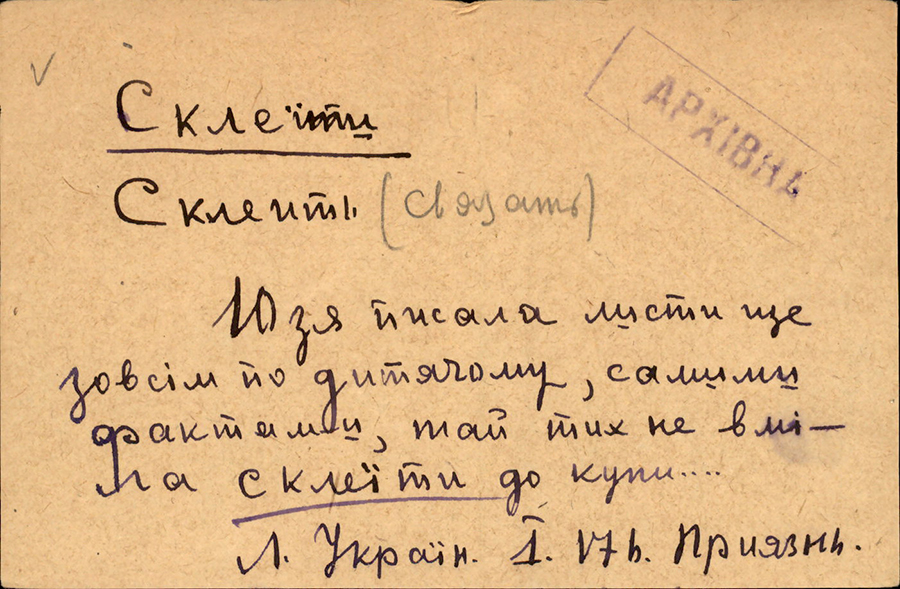 Склеїти
АРХІВНА
Склеить (связать)
Юзя писала листи ще
зовсім по дитячому, самими
фактами, тай тих не вмі–
ла склеїти до купи....
Л. Україн. I. 176. Приязнь.